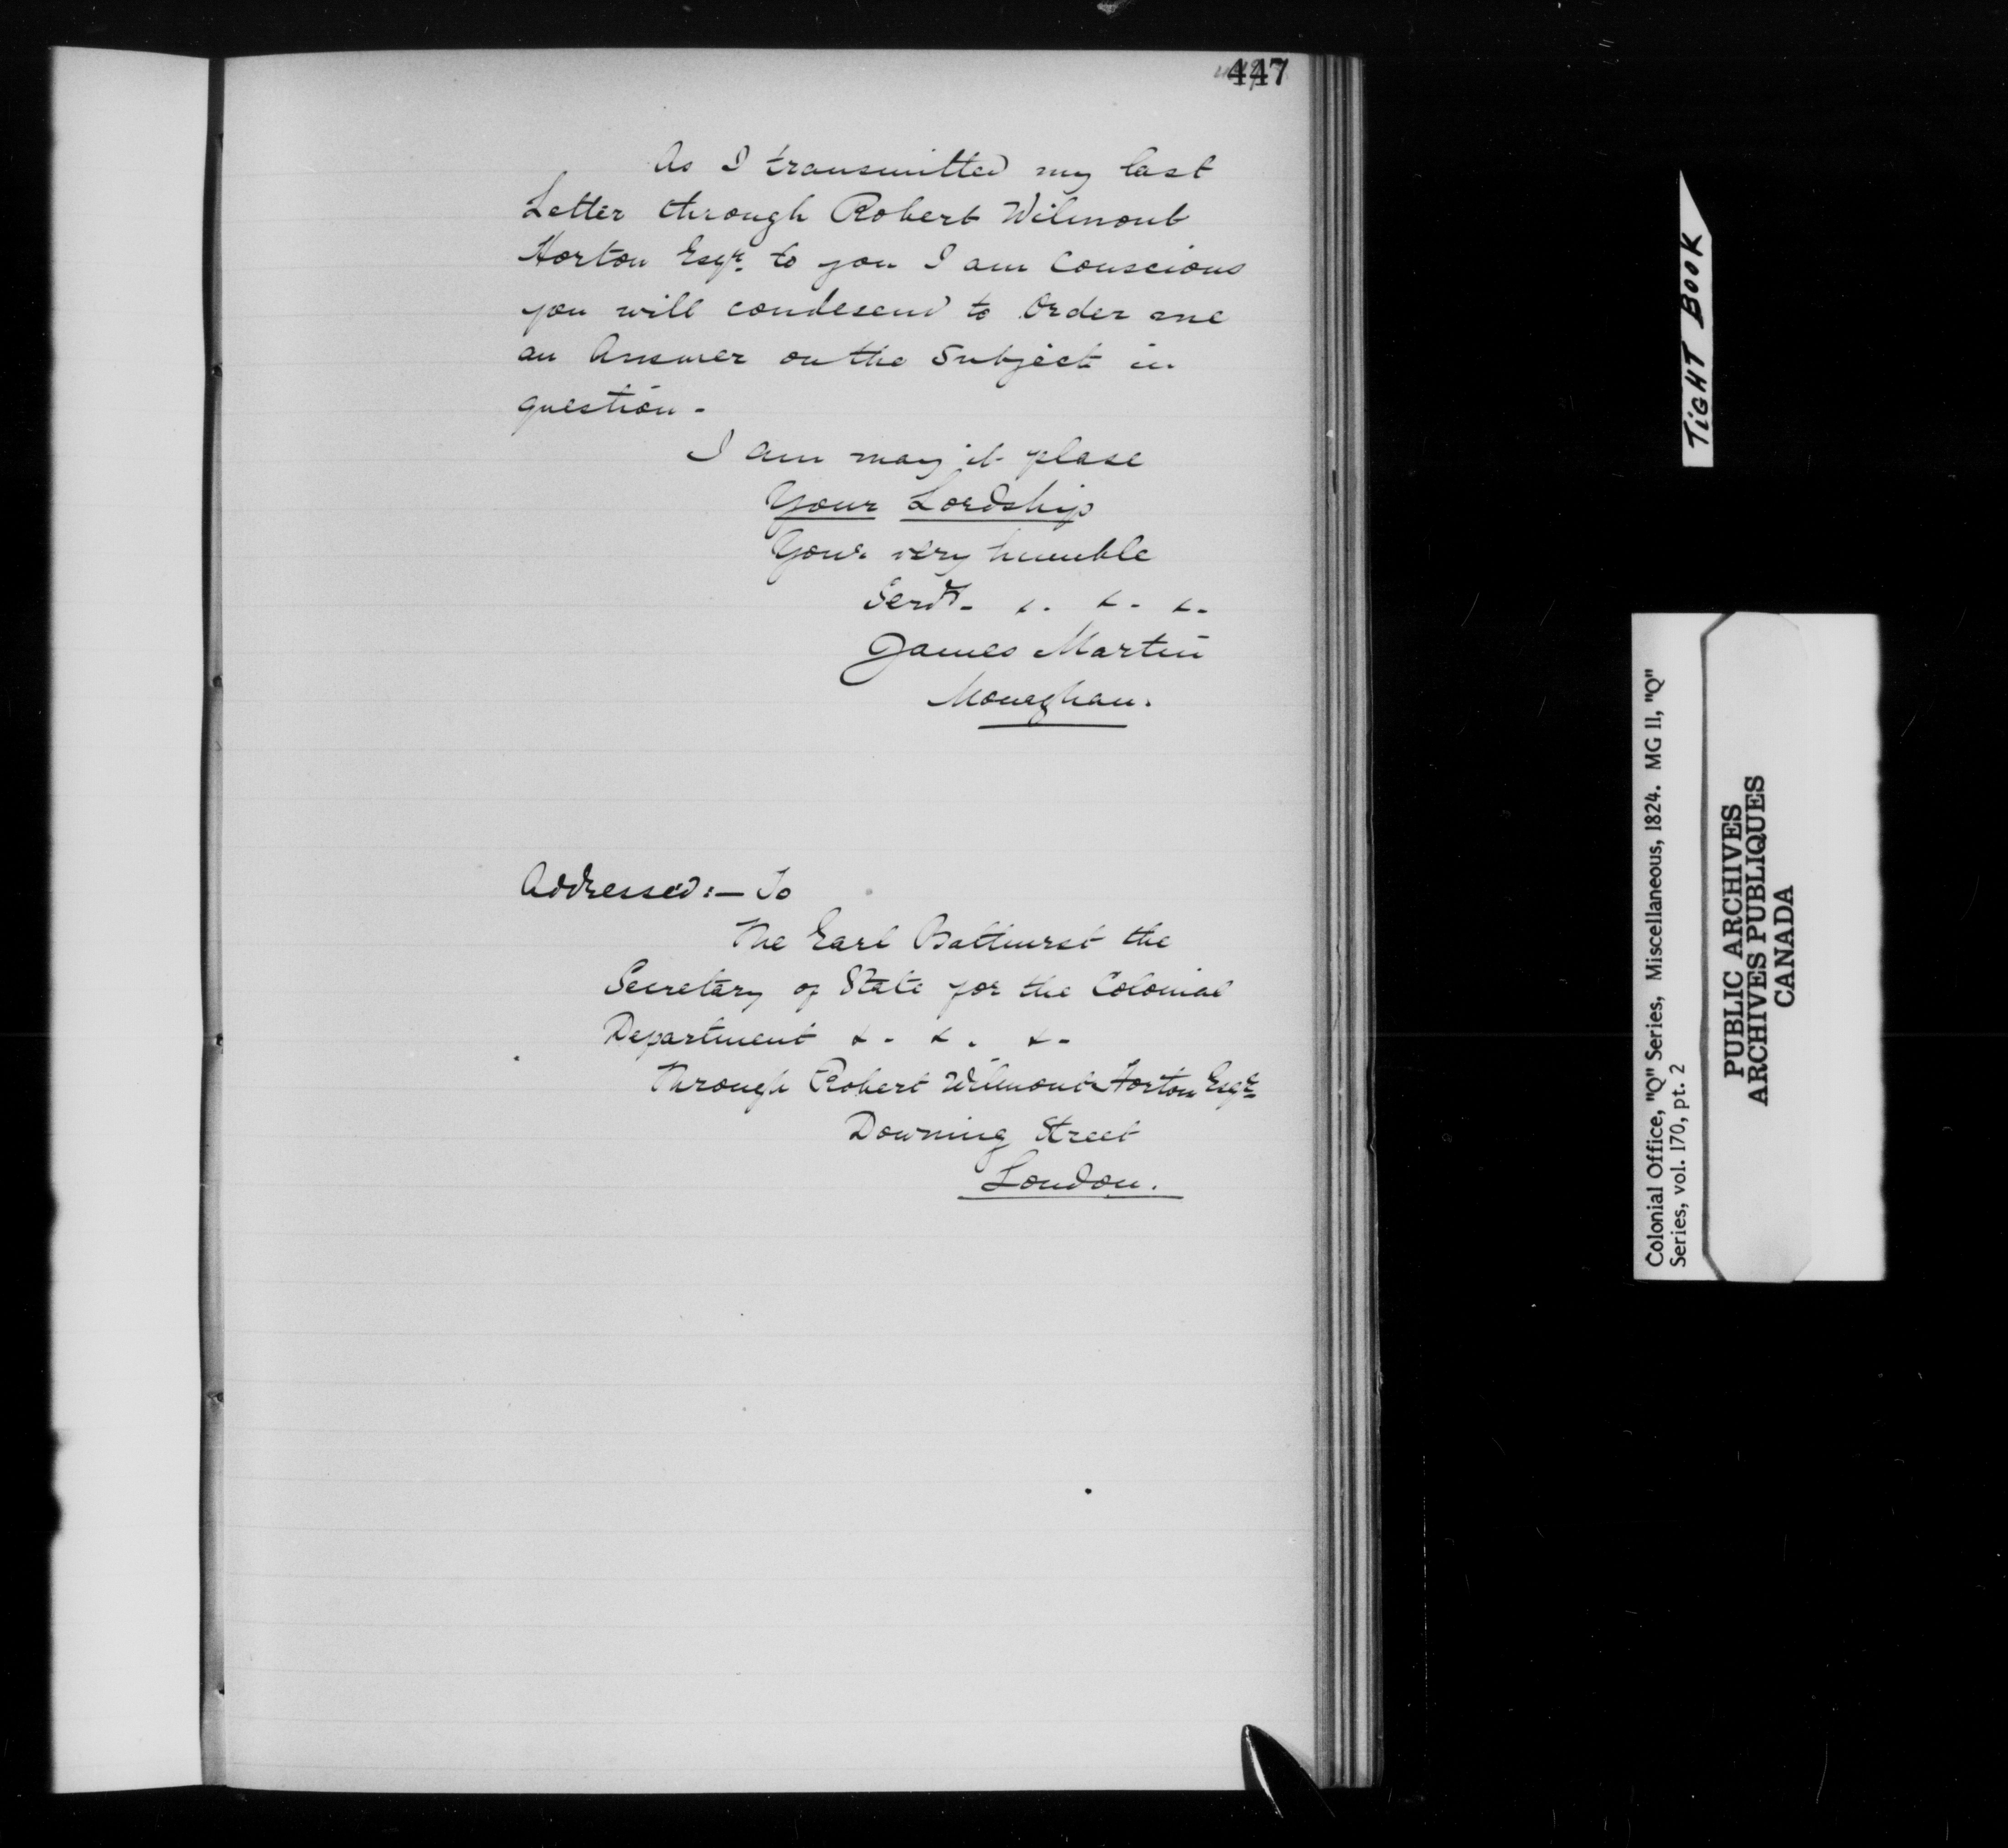 447
As I transmitted my last
Letter through Robert Wilmont
Horton Esqr. to you I am Conscious
you will condesend to Order me
an Answer on the Subject in
question -
I am may it plase
Your Lordship
Your very humble
Servt. &. &. &.
James Martin
Moneghan.
Addressed:- To
The Earl Bathurst the
Secretary of State for the Colonial
Department &. &. &.
Through Robert Wilmont Horton Esqr.
Downing Street
London.
TIGHT BOOK
Colonial Office, "Q" Series, Miscellaneous, 1824. MG 11, "Q"
Series, vol. 170, pt. 2
PUBLIC ARCHIVES
ARCHIVES PUBLIQUES
CANADA